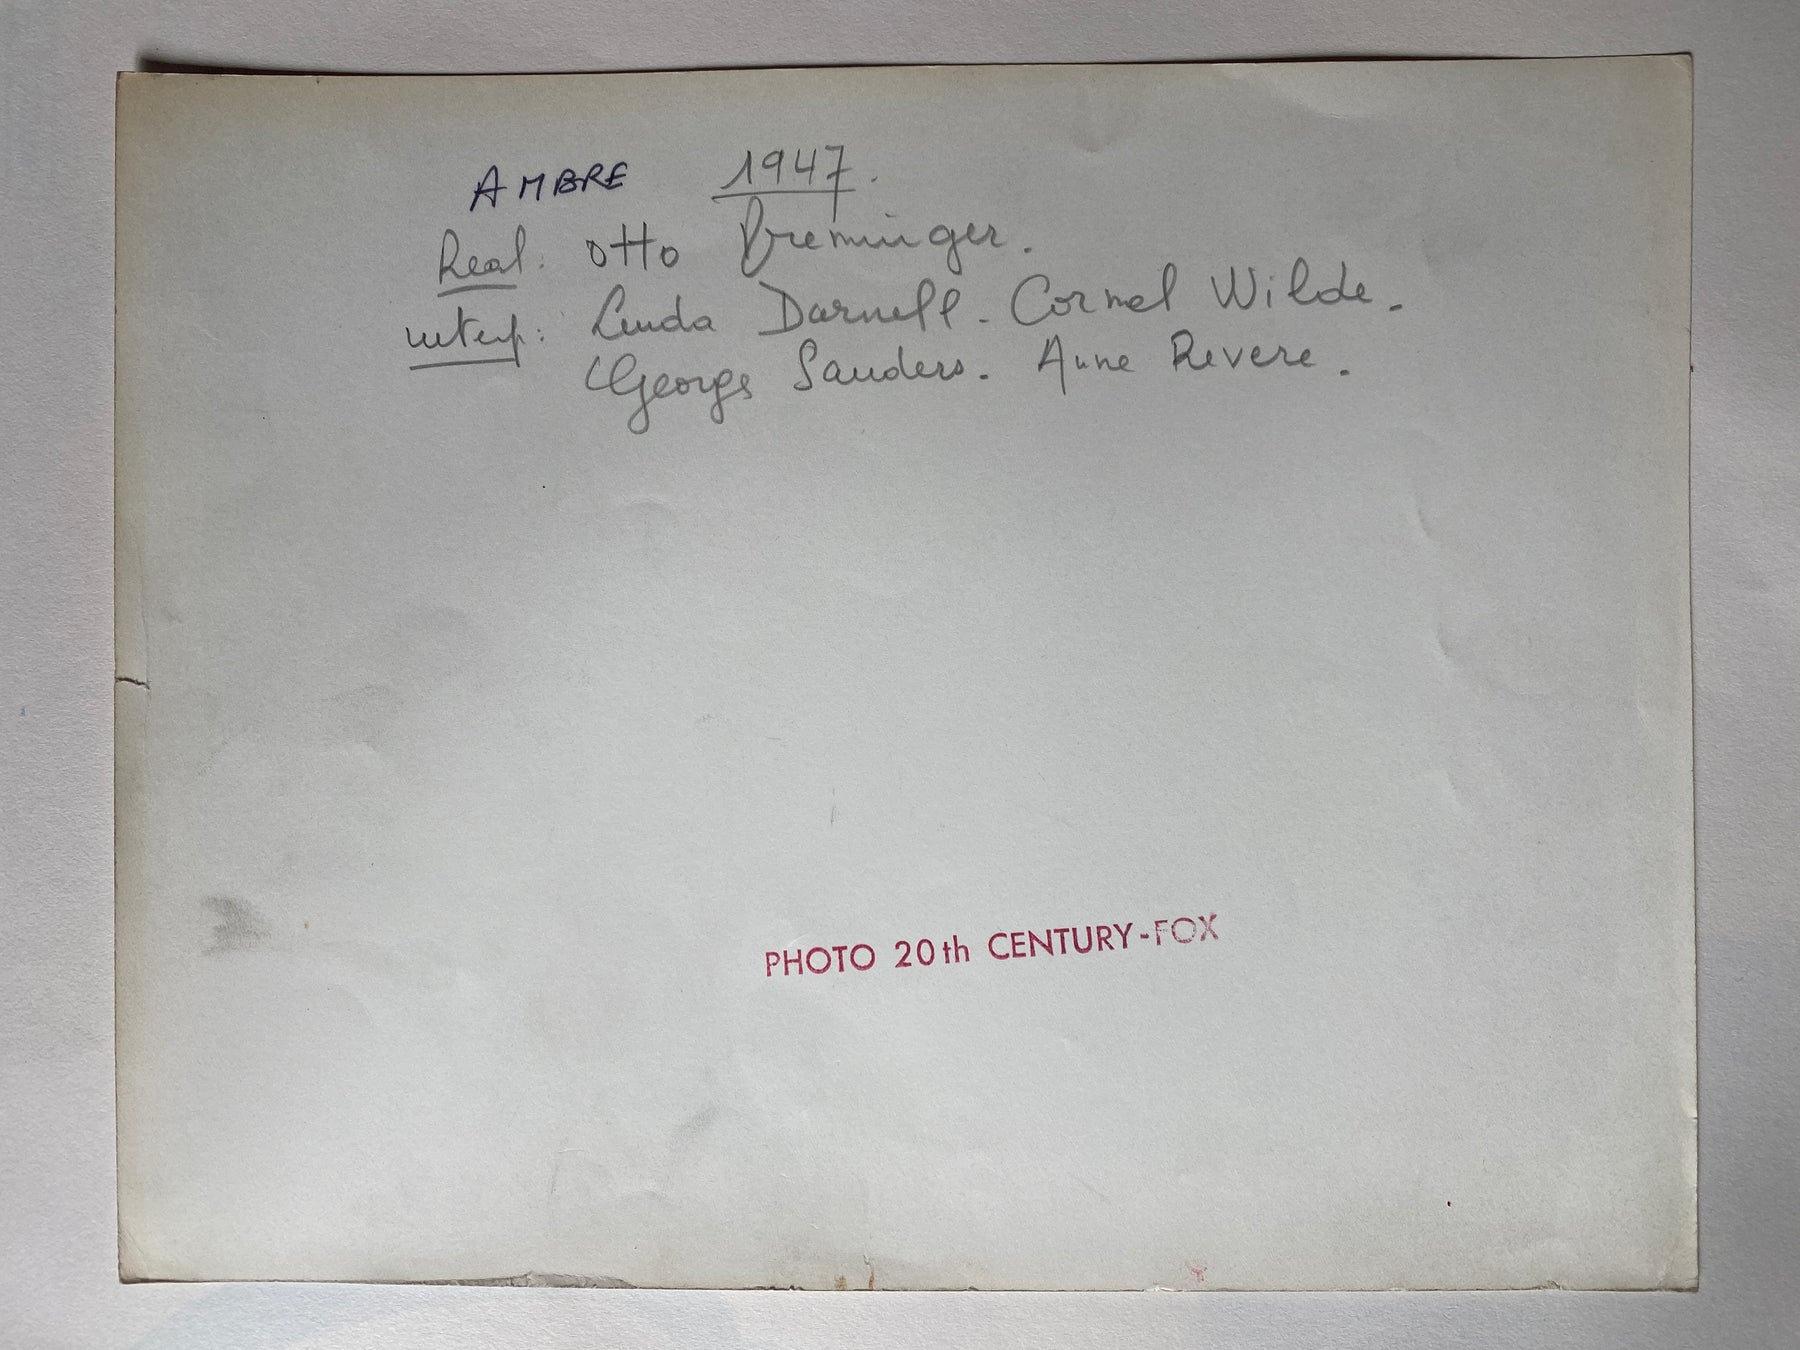 AMBRE 1947.
Real: Otto Preminger.
interp: Linda Darnell. Cornel Wilde.
George Sanders. Anne Revere.
PHOTO 20th CENTURY-FOX